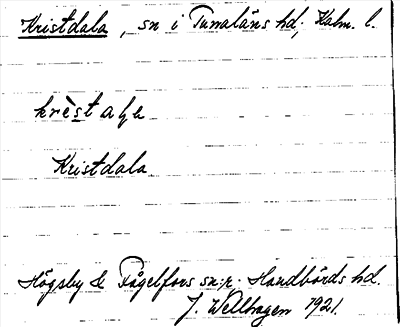 Kristdala, sn i Tunaläns hd; Kalm. l.
krèstaḷa
Kristdala
Högsby & Fågelfors sn:r; Handbörds hd.
J. Wellhagen 1921.